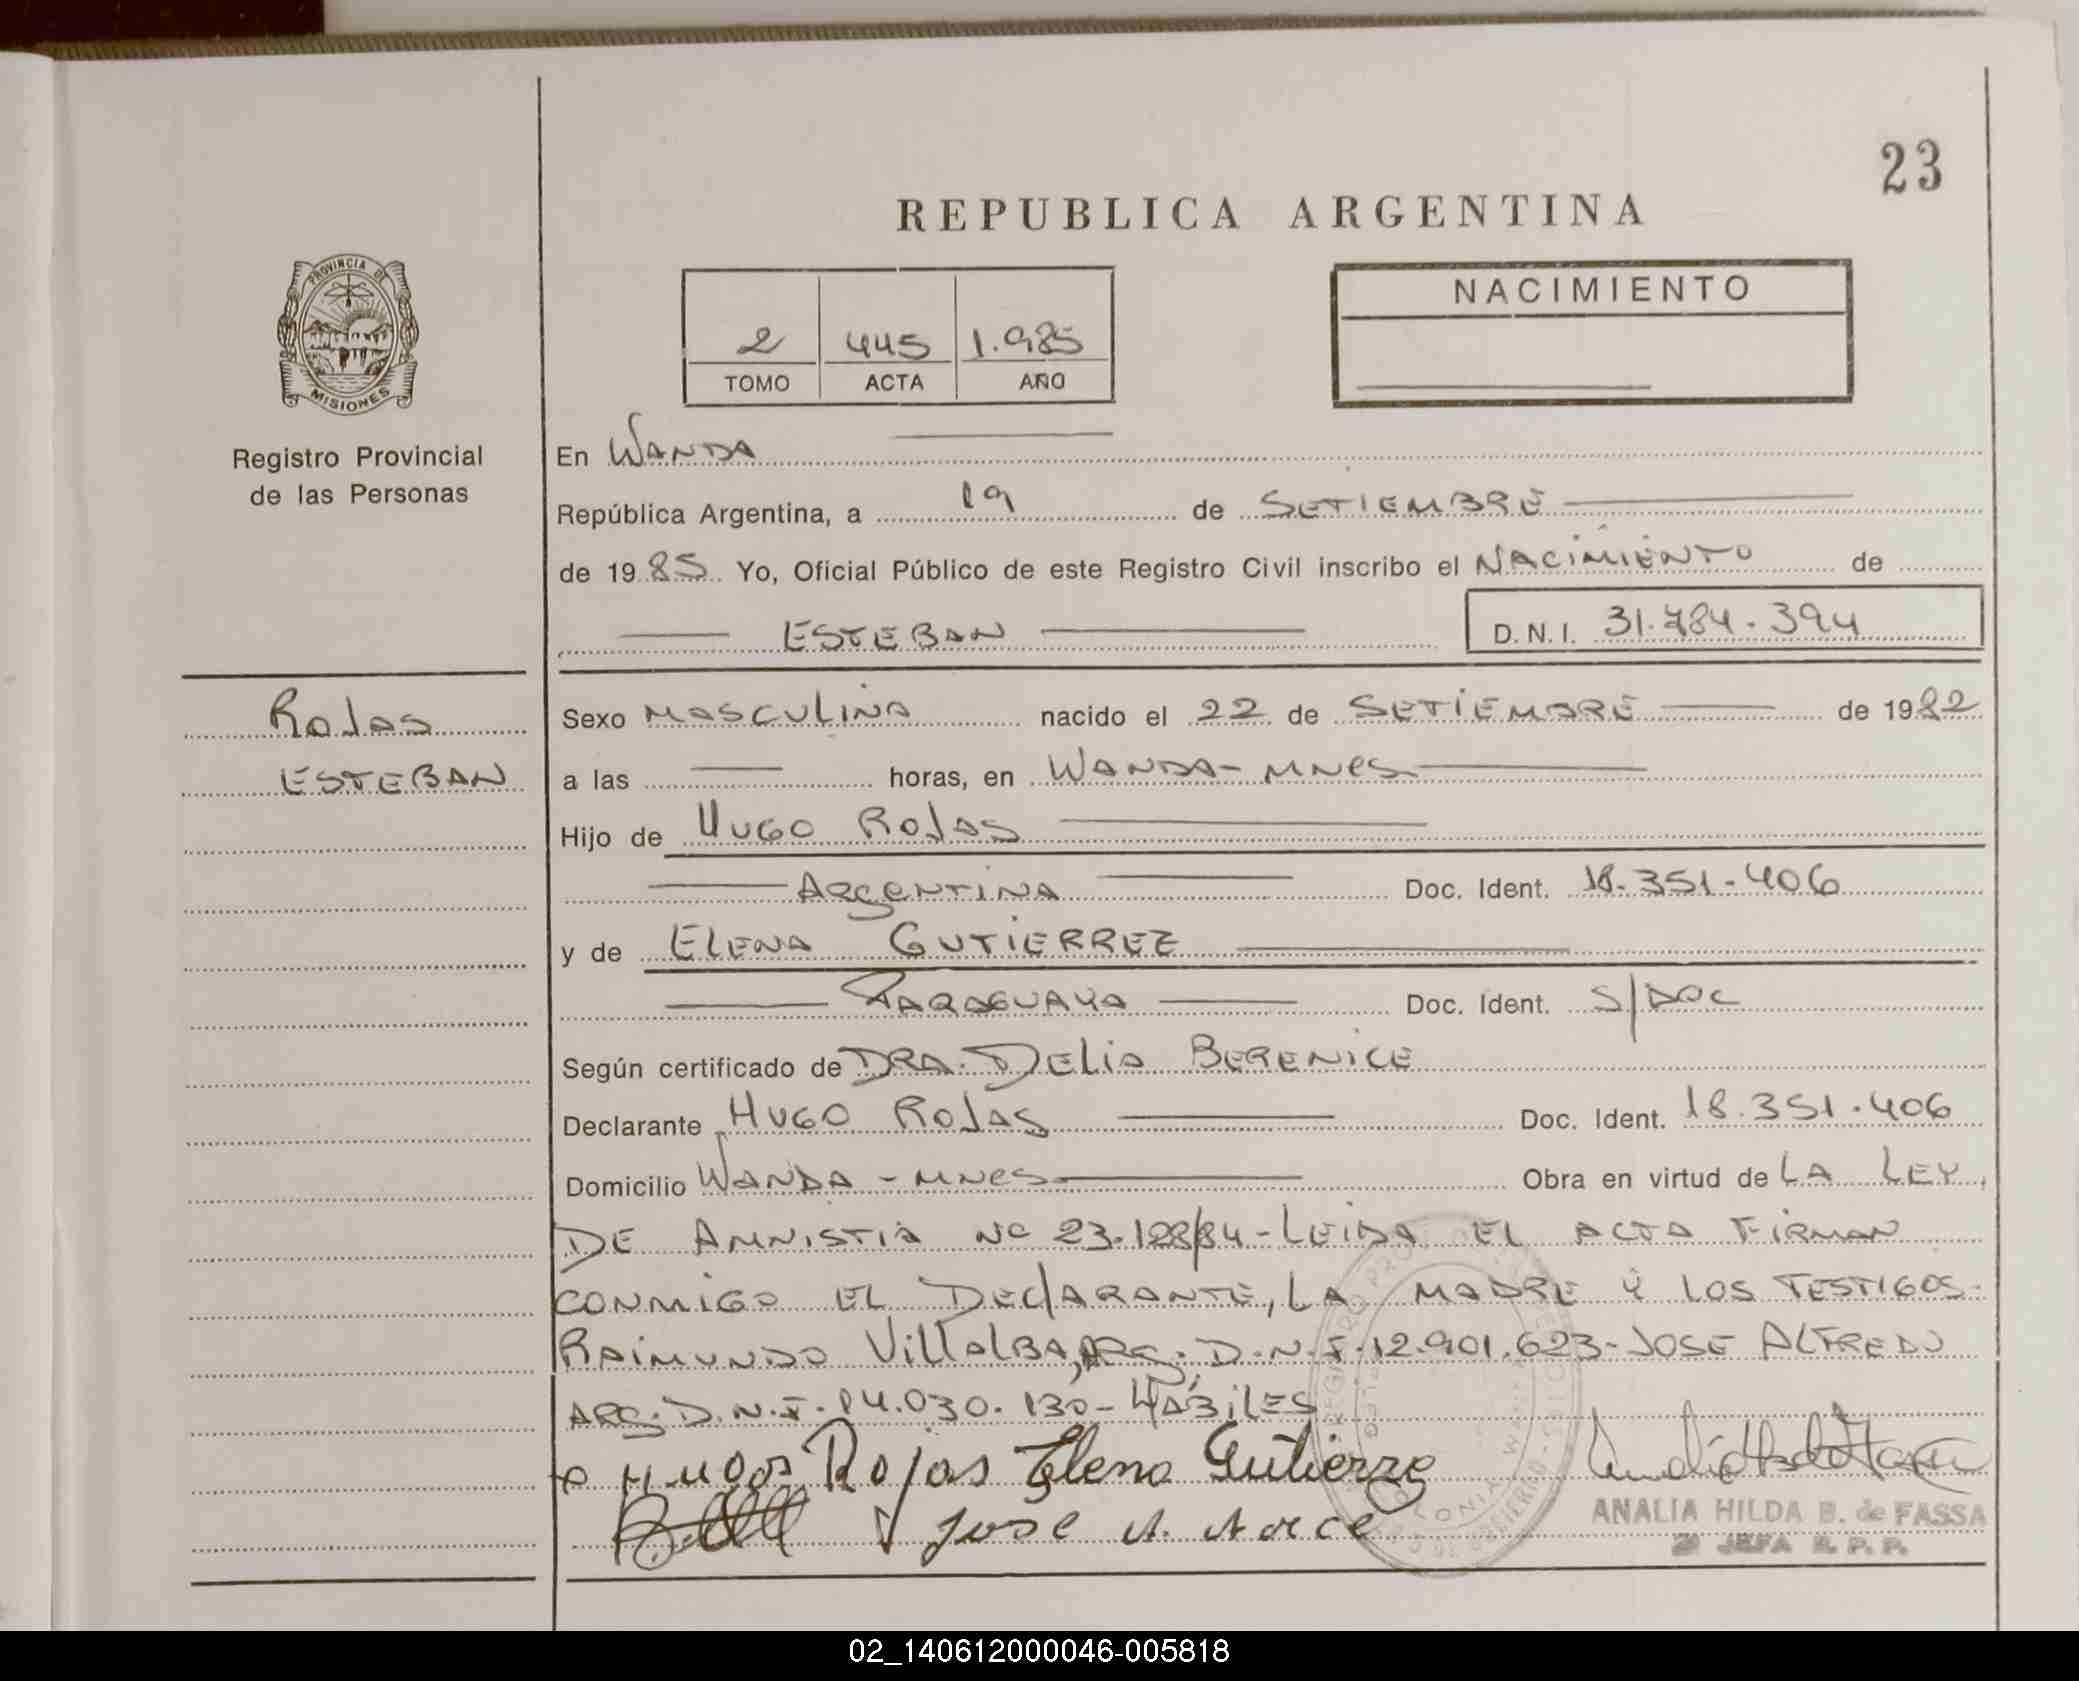 23
REPUBLICA ARGENTINA
PROVINCIA DE
MISIONES
Registro Provincial
de las Personas
2 445 1.985
TOMO ACTA AÑO
NACIMIENTO
En WANDA
República Argentina, a 19 de SETIEMBRE
de 1985 Yo, Oficial Público de este Registro Civil inscribo el NACIMIENTO de
ESTEBAN D.N.I. 31.784.394
ROJAS
ESTEBAN
Sexo MASCULINO nacido el 22 de SETIEMBRE de 1982
a las horas, en WANDA-MNES
Hijo de HUGO ROJAS
ARGENTINA Doc. Ident. 18.351.406
y de ELENA GUTIERREZ
PARAGUAYA Doc. Ident. S/DOC
Según certificado de DRA. DELIA BERENICE
Declarante HUGO ROJAS Doc. Ident. 18.351.406
Domicilio WANDA-MNES Obra en virtud de LA LEY
DE AMNISTIA Nº 23.128/84-LEIDA EL ACTA FIRMAN
CONMIGO EL DECLARANTE, LA MADRE Y LOS TESTIGOS-
RAIMUNDO VILLALBA, ARG. D.N.I. 12.901.623-JOSE ALFREDO
ARG. D.N.I. 14.030.130-HÁBILES
Hugo Rojas Elena Gutierrez
Jose A. Arce
ANALIA HILDA B. de FASSA
JEFA R. P. P.
02_140612000046-005818